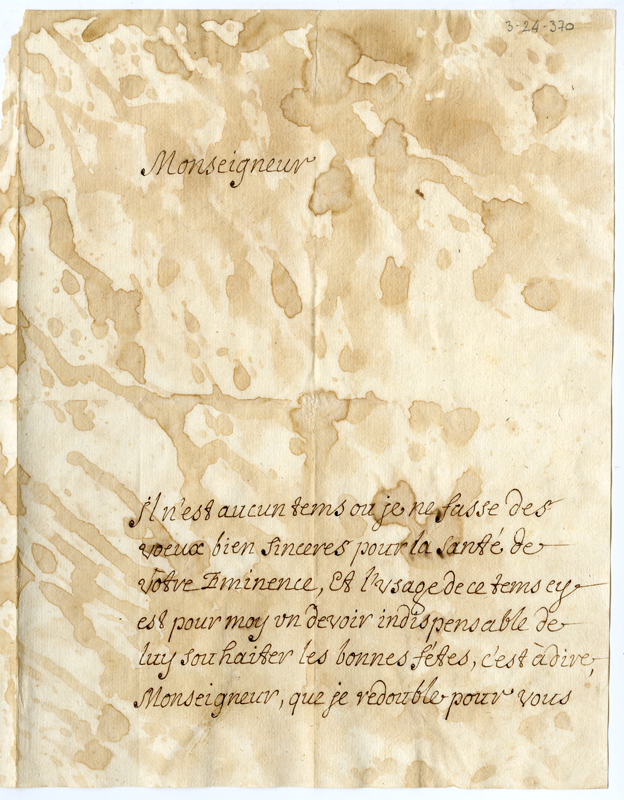 3-24-370
Monseigneur
il n'est aucun tems ou je ne fasse des
voeux bien sinceres pour la santé de
Votre Eminence, Et l'Vsage de ce tems cy
est pour moy vn devoir indispensable de
luy souhaiter les bonnes fêtes, c'est à dire,
Monseigneur, que je redouble pour vous